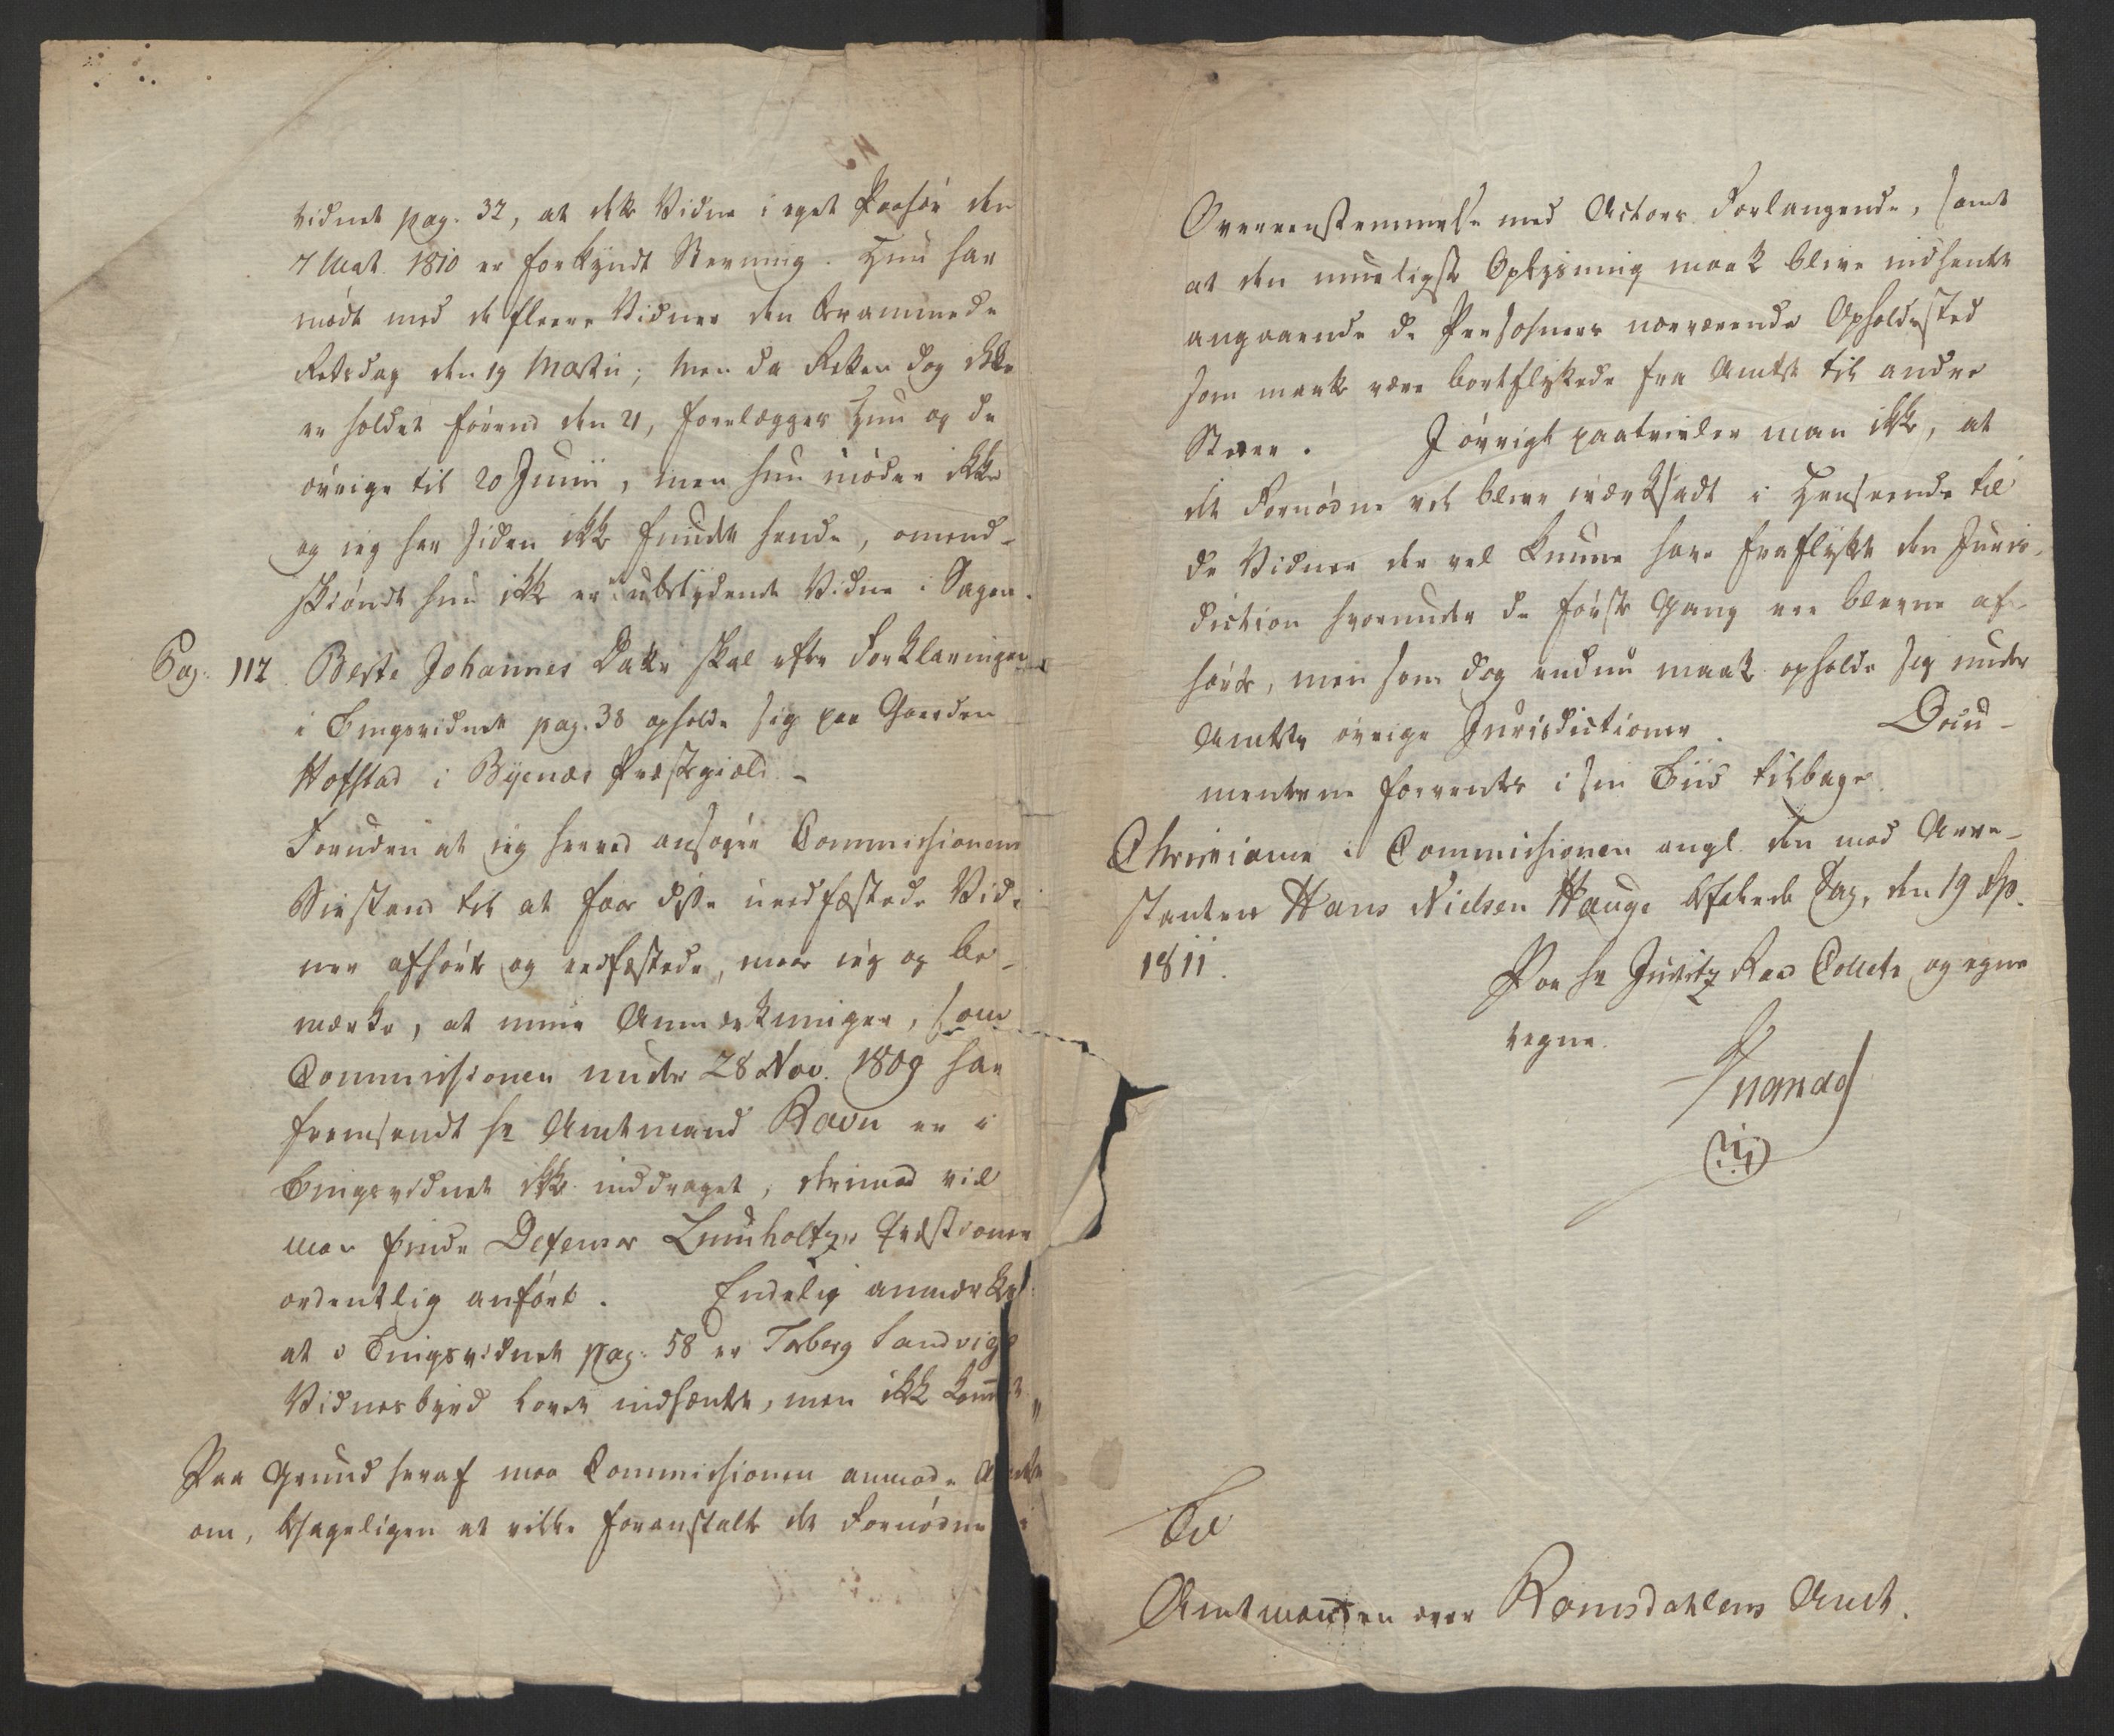 vidnet pag. 32, at dette Vidne i eget Paahør den
7 Mat. 1810 er forkyndt Stevning. Hun har
mødt med de fleere Vidner den berammede
Retsdag den 19 Martii; men da Retten dog ikke
er holdet førend den 21, forelægges hun og de
øvrige til 20 Junii, men hun møder ikke
og jeg har siden ikke fundet hende, omend-
skiøndt hun ikke er ubetydende Vidne i Sagen.
Pag. 112. Berte Johannes Datter skal efter Forklaringen
i Tingsvidnet pag. 38 opholde sig paa Gaarden
Hofstad i Byenæs Præstegield. -
Foruden at jeg herved ansøger Commissionens
Biestand til at faae disse ueedfæstede Vid-
ner afhørte og eedfæstede, maae jeg og be-
mærke, at mine Anmærkninger, som
Commissionen under 28 Nov. 1809 har
fremsendt Hr Amtmand Ravn er i
Tingsvidnet ikke inddraget, derimod vil
man finde Defensor Lumholtzes Qvæstioner
ordentlig anført. Endelig anmærkes
at i Tingsvidnet pag. 58 er Torberg Sandvigs
Vidnesbyrd lovet indhentet, men ikke kommet "
Paa Grund heraf maa Commissionen anmode Amtet
om, behageligen at ville foranstalte det Fornødne i
Overeenstemmelse med Actors Forlangende, samt
at den mueligste Oplysning maatte blive indhentet
angaaende de Personers nærværende Opholdssted
som maatte være bortflyttede fra Amtet til andre
Stæder. I øvrigt paatvivler man ikke, at
det Fornødne vil blive iværksadt i Henseende til
de Vidner der vel kunne have fraflyttet den Juris-
diction hvorunder de første Gang ere blevne af-
hørte, men som dog endnu maatte opholde sig under
Amtets øvrige Jurisdictioner. Docu-
menterne forventes i sin Tiid tilbage.
Christiania i Commissionen angl. den mod Arre-
stanten Hans Nielsen Hauge befalede Sag, den 19 Sp.
1811.
Paa Hr Justitz Raad Collets og egne
vegne.
Til
Amtmanden over Romsdahlens Amt.